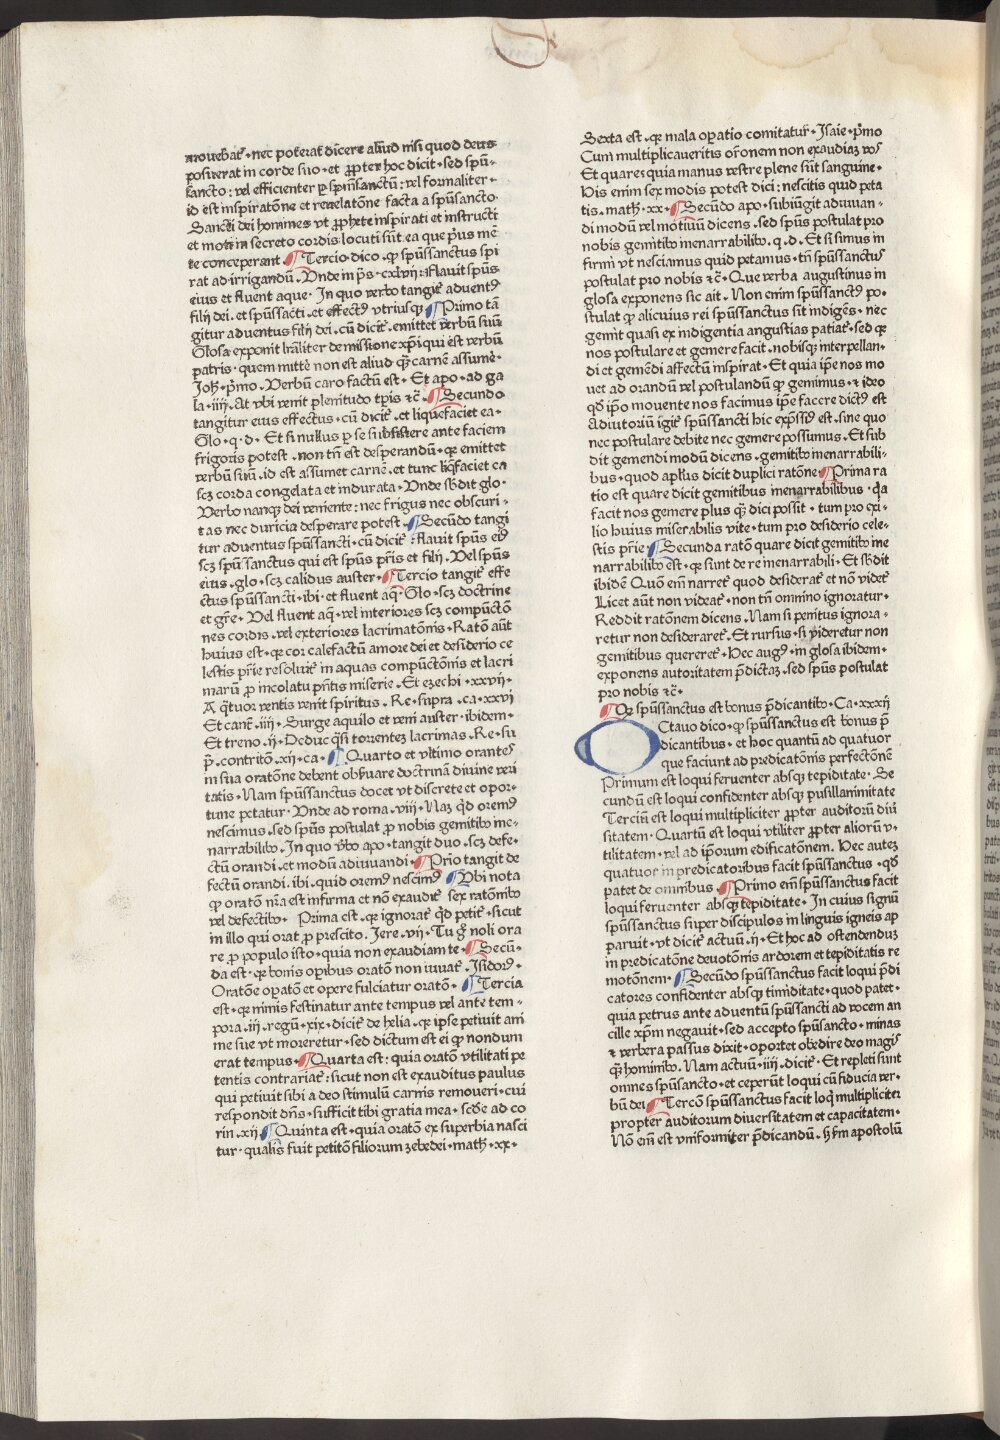 mouebat᷑ · nec poterat dicere aliud nisi quod deus
posuerat in corde suo · et ꝓpter hoc dicit · sed spū-
sancto : vel efficienter ꝑ spm̄sanctū : vel formaliter ·
id est inspiratōne et reuelatōne facta a spūsancto ·
Sancti dei homines vt ꝓphete inspirati et instructi
et moti in secreto cordis locuti sūt ea que pͥus mē
te conceperant ¶ Tercio dico · ꝙ spūssanctus spi
rat ad irrigandū · Vnde in ps̄ · cxlvii : Flauit spūs
eius et fluent aque · In quo verbo tangit᷑ aduentꝰ
filij dei · et spūssācti · et effectꝰ vtriusqꝫ ¶ Primo tā
gitur aduentus filij dei · cū dicit᷑ · emittet verbū suū
Glosa exponit lr̄aliter de missione xp̄i qui est verbū
patris · quem mitte᷑ non est aliud qͣꝫ carnē assume᷑ ·
Joh̄ · pͥmo · Verbū caro factū est · Et apo · ad ga
la · iiij · At vbi venit plenitudo tp̄is ⁊c̄ · ¶ Secundo
tangitur eius effectus · cū dicit᷑ · et liquefaciet ea ·
Glo · q · d · Et si nullus ꝑ se subsistere ante faciem
frigoris potest · non tn̄ est desperandū · qꝛ emittet
verbū suū · id est assumet carnē · et tunc liq̄faciet ea
scꝫ corda congelata et indurata · Vnde sb̄dit glo ·
Verbo nanqꝫ dei veniente : nec frigus nec obscuri ·
tas nec duricia desperare potest · ¶ Secūdo tangi
tur aduentus spūssancti · cū dicit᷑ : flauit spūs eiꝰ
scꝫ spūssanctus qui est spūs pr̄is et filij · Vel spūs
eius · glo · scꝫ calidus auster · ¶ Tercio tangit᷑ effe
ctus spūssancti · ibi · et fluent aq̄ · Glo · scꝫ doctrine
et gr̄e · Vel fluent aq̄ · vel interiores scꝫ compūctō
nes cordis · vel exteriores lacrimatōnis · Ratō aūt
huius est · qꝛ cor calefactū amore dei et desiderio ce
lestis pr̄ie resoluit᷑ in aquas compūctōnis et lacri
marū ꝓ incolatu pn̄tis miserie · Et ezechi · xxvij ·
A qͣtuor ventis venit spiritus · Re · supra · ca · xxvi
Et cant̄ · iiij · Surge aquilo et veni auster · ibidem ·
Et treno · ij · Deduc qͣsi torrentes lacrimas · Re · su
p̄ · contritō · xij · ca · ¶ Quarto et vltimo orantes
in sua oratōne debent obẜuare doctrinā diuine veri
tatis · Nam spūssanctus docet vt discrete et opor-
tune petatur · Vnde ad roma · viij · Naꝫ qͥd oremꝰ
nescimus · sed spūs postulat ꝓ nobis gemitibꝰ ine-
narrabilibꝰ · In quo v̄bo apo · tangit duo · scꝫ defe-
ctū orandi · et modū adiuuandi · ¶ Prīo tangit de
fectū orandi · ibi · quid oremꝰ nescimꝰ ¶ Vbi nota
ꝙ oratō nr̄a est infirma et nō exaudit᷑ sex ratōnibꝰ
vel defectibꝰ · Prima est · qꝛ ignorat᷑ qͥd petit᷑ · sicut
in illo qui orat ꝓ prescito · Jere · vij · Tu gͦ noli ora
re ꝓ populo isto · quia non exaudiam te · ¶ Secū-
da est · qꝛ bonis opibus oratō non iuuat᷑ · Jsidorꝰ ·
Oratōe oꝑatō et opere fulciatur oratō · ¶ Tercia
est · qꝛ nimis festinatur ante tempus vel ante tem-
pora · iij · regū · xix · dicit᷑ de helia · qꝛ ipse petiuit ani
me sue vt moreretur · sed dictum est ei ꝙ nondum
erat tempus · ¶ Quarta est : quia oratō vtilitati pe
tentis contrariat᷑ : sicut non est exauditus paulus
qui petiuit sibi a deo stimulū carnis remoueri · cui
respondit dn̄s · sufficit tibi gratia mea · sed̄e ad co
rin · xij ¶ Quinta est · quia oratō ex superbia nasci
tur · qualis fuit petitō filiorum zebedei · math̄ · xx ·
Sexta est · qꝛ mala oꝑatio comitatur᷑ · Jsaie · pͥmo
Cum multiplicaueritis or̄onem non exaudiaꝫ vos
Et quare · quia manus vestre plene sūt sanguine ·
His enim sex modis potest dici : nescitis quid peta
tis · math̄ · xx · ¶ Secūdo apo · subiūgit adiuuan-
di modū vel motiuū dicens · sed spūs postulat pro
nobis gemitibꝰ inenarrabilibꝰ · q · d · Et si simus in
firmi vt nesciamus quid petamus · tn̄ spūssanctus
postulat pro nobis ⁊c̄ · Que verba augustinus in
glosa exponens sic ait · Non enim spūssanctꝰ po-
stulat ꝙ alicuius rei spūssanctus sit indigēs · nec
gemit quasi ex indigentia angustias patiat᷑ · sed qꝛ
nos postulare et gemere facit · nobisqꝫ interpellan-
di et gemēdi affectū inspirat · Et quia ip̄e nos mo
uet ad orandū vel postulandū ꝙ gemimus · ⁊ ideo
qd̄ ip̄o mouente nos facimus ip̄e facere dictꝰ est
Adiutoriū igit᷑ spūssancti hic exp̄ssū est · sine quo
nec postulare debite nec gemere possumus · Et sub
dit gemendi modū dicens · gemitibꝰ inenarrabili-
bus · quod apl̄us dicit duplici ratōne ¶ Prima ra
tio est quare dicit gemitibus inenarrabilibus · qͥa
facit nos gemere plus qͣꝫ dici possit · tum pro exi-
lio huius miserabilis vite · tum pro desiderio cele-
stis pr̄ie ¶ Secunda ratō quare dicit gemitibꝰ ine
narrabilibꝰ est · qꝛ sunt de re inenarrabili · Et sb̄dit
ibidē Quō em̄ narret᷑ quod desiderat᷑ et nō videt᷑
Licet aūt non videat᷑ · non tn̄ omnino ignoratur ·
Reddit ratōnem dicens · Nam si penitus ignora-
retur non desideraret᷑ · Et rursus · si videretur non
gemitibus quereret᷑ · Hec augꝰ · in glosa ibidem ·
exponens autoritatem p̄dictaꝫ · sed spūs postulat
pro nobis ⁊c̄ ·
¶ Qꝛ spūssanctus est bonus p̄dicantibꝰ · Ca · xxxij
OCtauo dico · ꝙ spūssanctus est bonus p̄
dicantibus · et hoc quantū ad quatuor
que faciunt ad predicatōnis perfectōnē
Primum est loqui feruenter absqꝫ tepiditate · Se
cundū est loqui confidenter absqꝫ pusillanimitate
Terciū est loqui multipliciter ꝓpter auditorū diū
sitatem · Quartū est loqui vtiliter ꝓpter aliorū v-
tilitatem · vel ad ip̄orum edificatōnem · Hec auteꝫ
quatuor in predicatoribus facit spūssanctus · qd̄
patet de omnibus · ¶ Primo em̄ spūssanctus facit
loqui feruenter absqꝫ tepiditate · In cuius signū
spūssanctus super discipulos in linguis igneis ap
paruit · vt dicit᷑ actuū · ij · Et hoc ad ostendenduꝫ
in predicatōne deuotōnis ardorem et tepiditatis re
motōnem · ¶ Secūdo spūssanctus facit loqui p̄di
catores confidenter absqꝫ timiditate · quod patet ·
quia petrus ante aduentū spūssancti ad vocem an
cille xp̄m negauit · sed accepto spūsancto · minas
⁊ verbera passus dixit · oportet obedire deo magis
qͣꝫ hominibꝰ · Nam actuū · iiij · dicit᷑ · Et repleti sunt
omnes spūsancto · et ceperūt loqui cū fiducia ver-
bū dei ¶ Terciō spūssanctus facit loqͥ multipliciter
propter auditorum diuersitatem et capacitatem ·
Nō em̄ est vniformiter p̄dicandū · ẜm apostolū